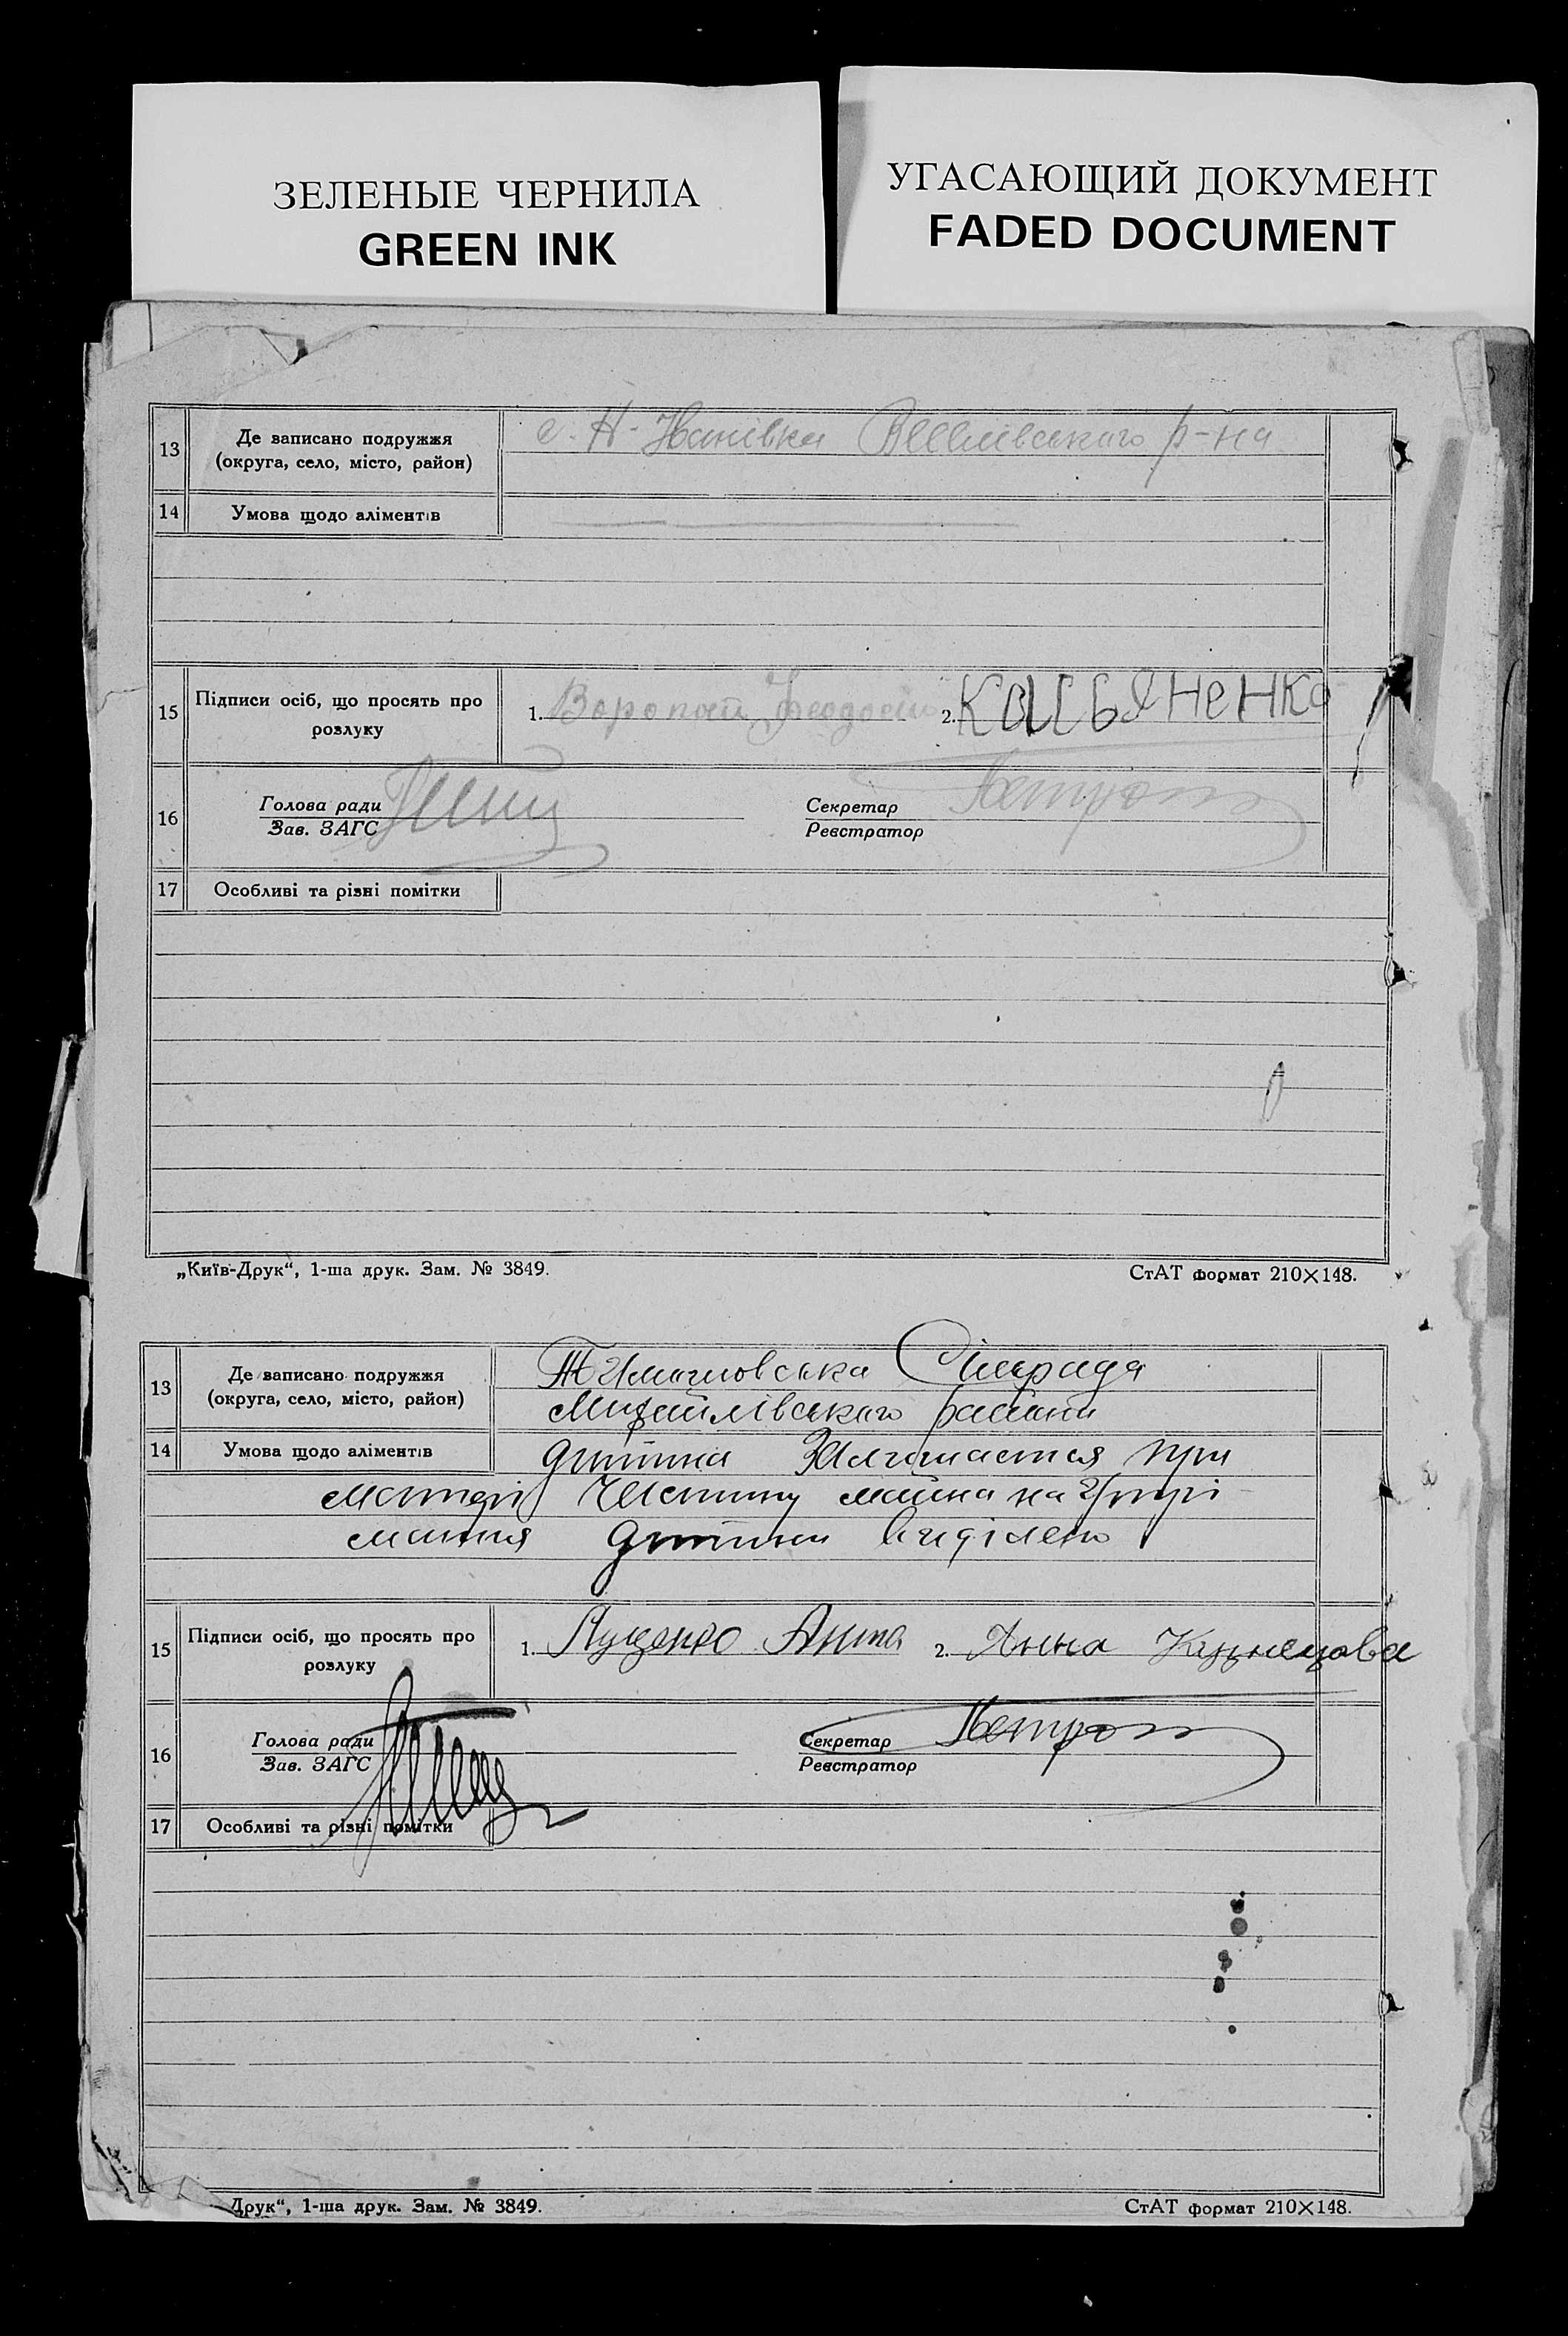 ЗЕЛЕНЫЕ ЧЕРНИЛА
GREEN INK
УГАСАЮЩИЙ ДОКУМЕНТ
FADED DOCUMENT
13 Де записано подружжя
(округа, село, місто, район)
с. Н-Іванівка р-на
14 Умова щодо аліментів
15 Підписи осіб, що просять про
розлуку
1. Воропай Феодосій 2. Касьяненко
16 Голова ради
Зав. ЗАГС
Секретар
Реєстратор
17 Особливі та різні помітки
„Київ-Друк“, 1-ша друк. Зам. № 3849. СтАТ формат 210×148.
13 Де записано подружжя
(округа, село, місто, район)
Сільрада
Михайлівського району
14 Умова щодо аліментів
дитина Залишается при
матері Частину майна на Утрі-
мання дитини виділено
15 Підписи осіб, що просять про
розлуку
1. Луценко 2. Анна Кузнецова
16 Голова ради
Зав. ЗАГС
Секретар
Реєстратор
17 Особливі та різні помітки
Друк“, 1-ша друк. Зам. № 3849. СтАТ формат 210×148.